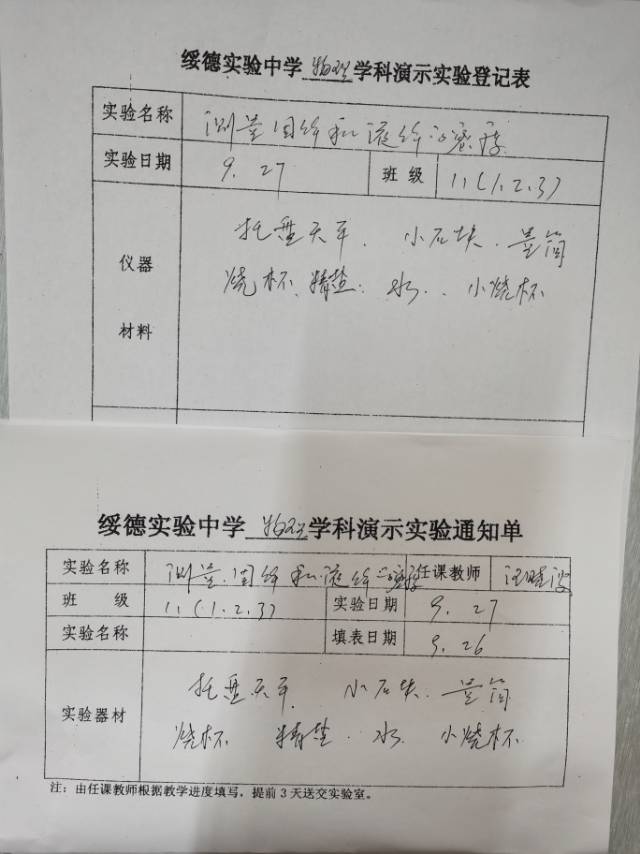 绥德实验中学 物理 学科演示实验登记表
实验名称 测量固体和液体的密度
实验日期 9.27 班级 11(1.2.3)
仪器
材料
托盘天平. 小石块. 量筒
烧杯. 精盐. 水.. 小烧杯
绥德实验中学 物理 学科演示实验通知单
实验名称 测量固体和液体的密度 任课教师
班 级 11(1.2.3) 实验日期 9.27
实验名称 填表日期 9.26
实验器材
托盘天平 小石块. 量筒
烧杯 精盐. 水. 小烧杯
注：由任课教师根据教学进度填写，提前3天送交实验室。